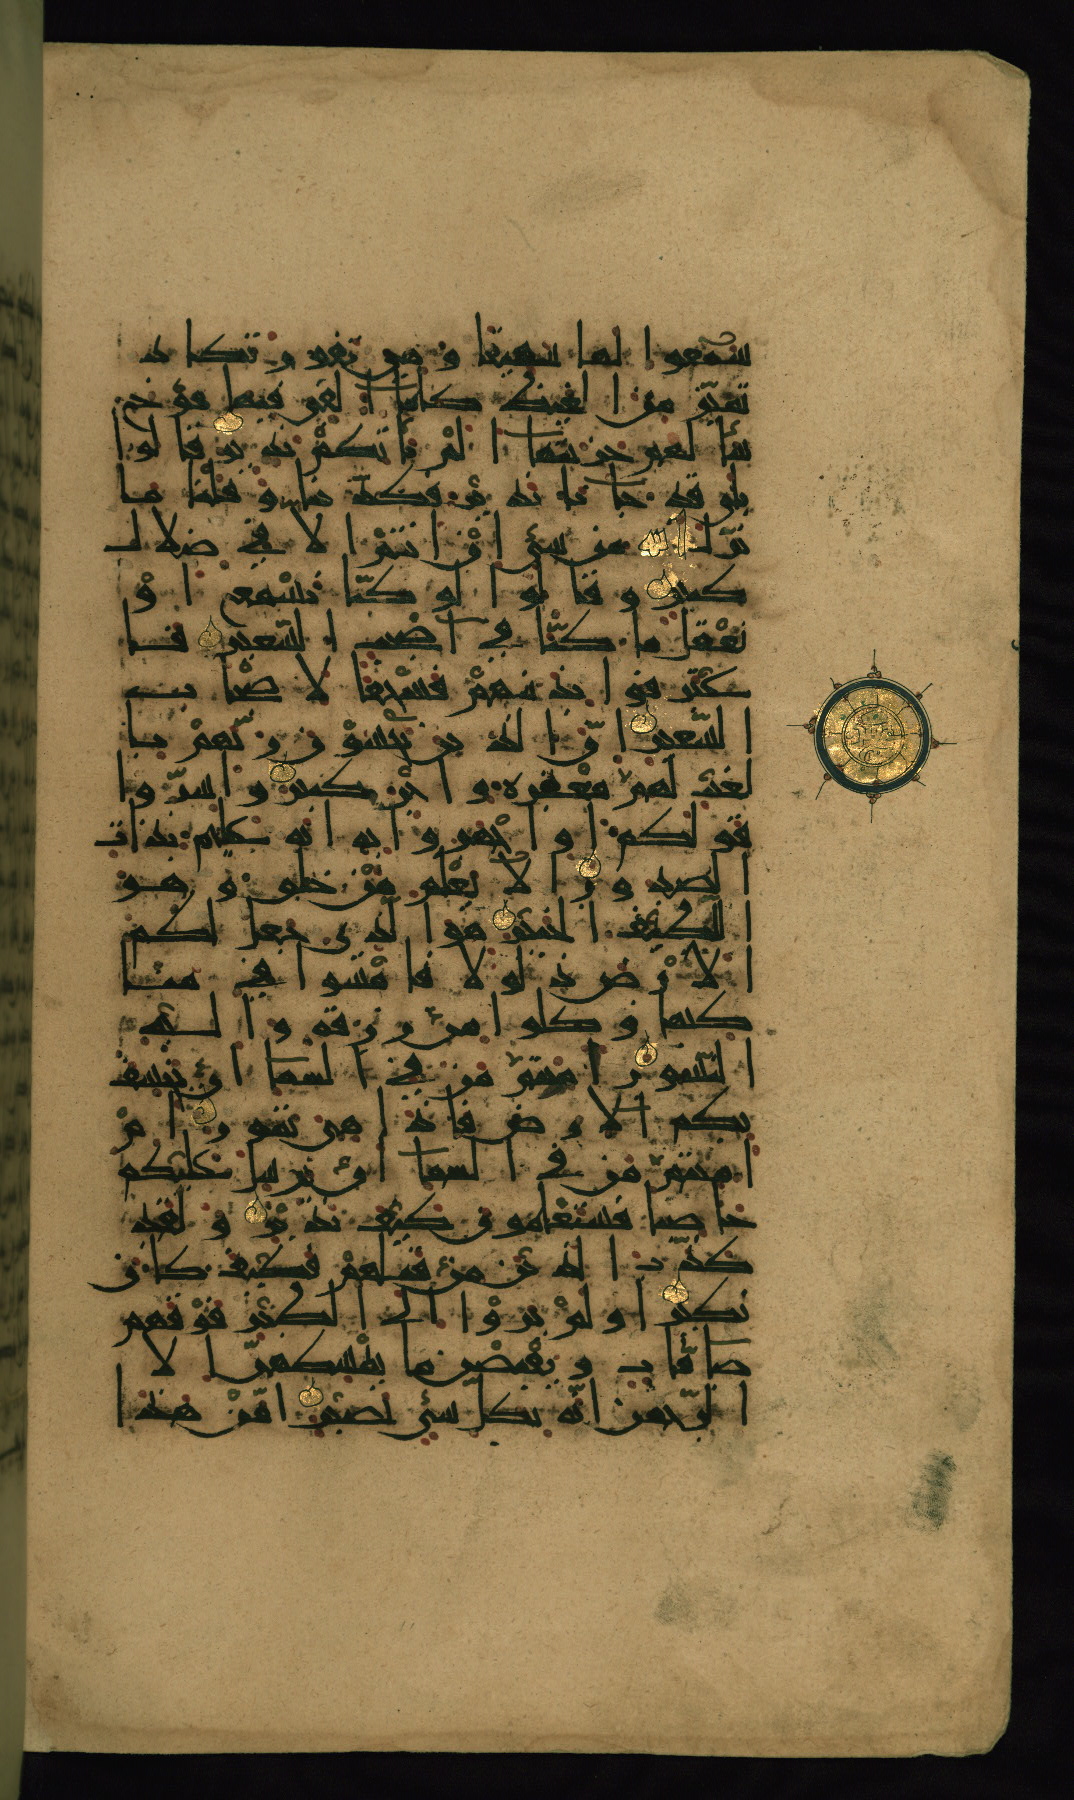 سمعوا لها شهيقا وهي تفور تكاد
تميز من الغيظ كلما ألقي فيها فوج
سألهم خزنتها ألم يأتكم نذير قالوا
بلى قد جاءنا نذير فكذبنا وقلنا ما
نزل الله من شيء إن أنتم إلا في ضلال
كبير وقالوا لو كنا نسمع أو
نعقل ما كنا في أصحب السعير فا
عترفوا بذنبهم فسحقا لأصحب
السعير إن الذين يخشون ربهم با
لغيب لهم مغفرة وأجر كبير وأسروا
قولكم أو اجهروا به إنه عليم بذات
الصدور ألا يعلم من خلق وهو
اللطيف الخبير هو الذي جعل لكم
الأرض ذلولا فامشوا في منا
كبها وكلوا من رزقه وإليه
النشور أأمنتم من في السماء أن يخسف
بكم الأرض فإذا هي تمور أم
أمنتم من في السماء أن يرسل عليكم
حاصبا فستعلمون كيف نذير ولقد
كذب الذين من قبلهم فكيف كان
نكير أولم يروا إلى الطير فوقهم
صافات ويقبضن ما يمسكهن إلا
الرحمن إنه بكل شيء بصير أمن هذا ا